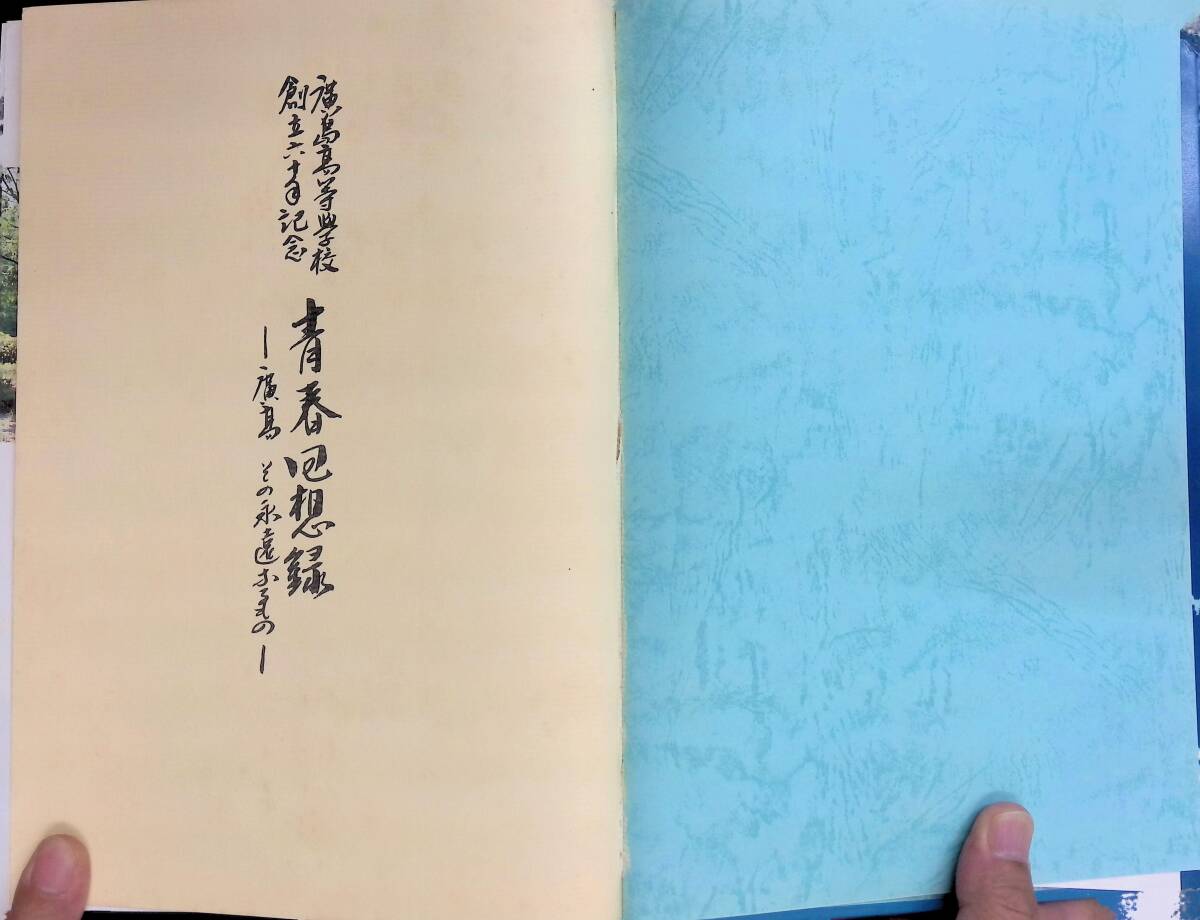 廣島高等學校
創立六十年記念
青春回想録
ー廣高 その永遠なるものー